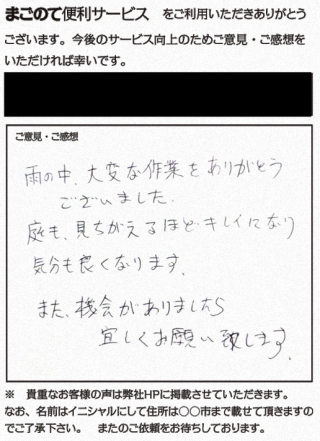 まごのて便利サービス をご利用いただきありがとう
ございます。今後のサービス向上のためご意見・ご感想を
いただければ幸いです。
ご意見・ご感想
雨の中、大変な作業をありがとう
ございました。
庭も、見ちがえるほどキレイになり
気分も良くなります。
また、機会がありましたら
宜しくお願い致します。
※ 貴重なお客様の声は弊社HPに掲載させていただきます。
なお、名前はイニシャルにして住所は〇〇市まで載せて頂きますの
でご了承下さい。 またのご依頼をお待ちしております。